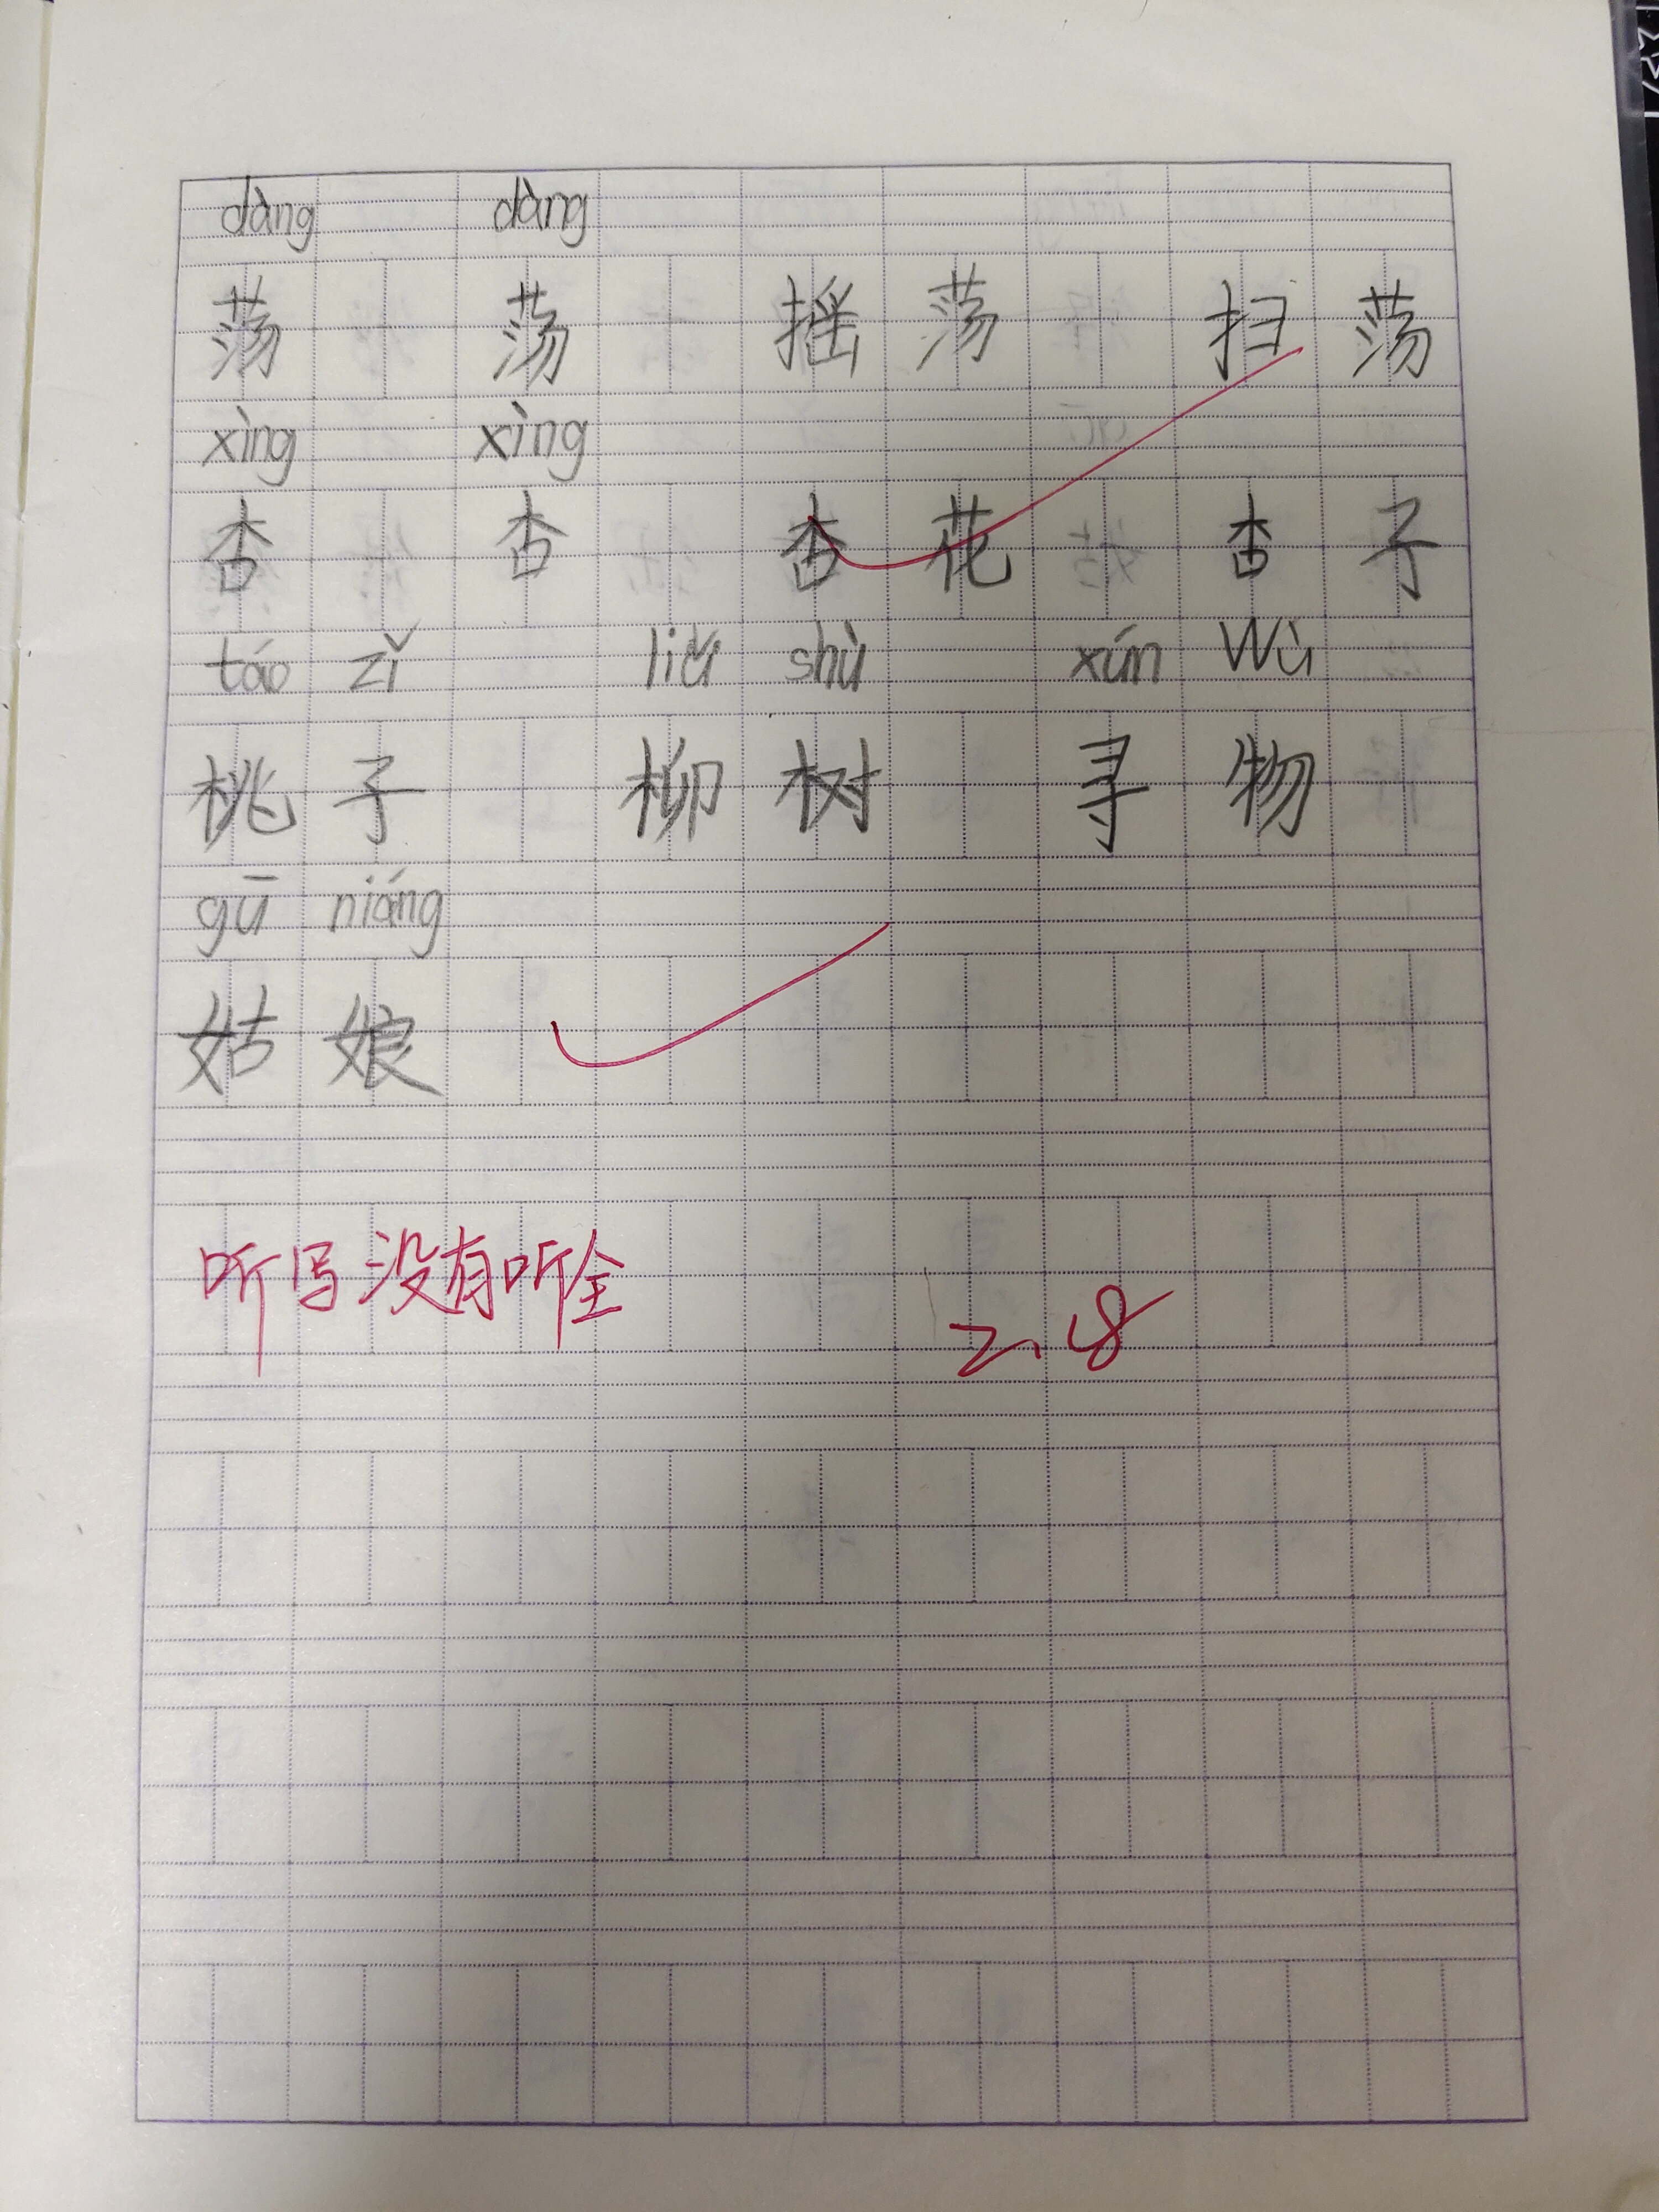 dàng dàng
荡 荡 摇荡 扫荡
xìng xìng
杏 杏 杏花 杏子
táo zǐ liǔ shù xún Wù
桃子 柳树 寻物
gū niáng
姑娘
听写没有听全
2.18